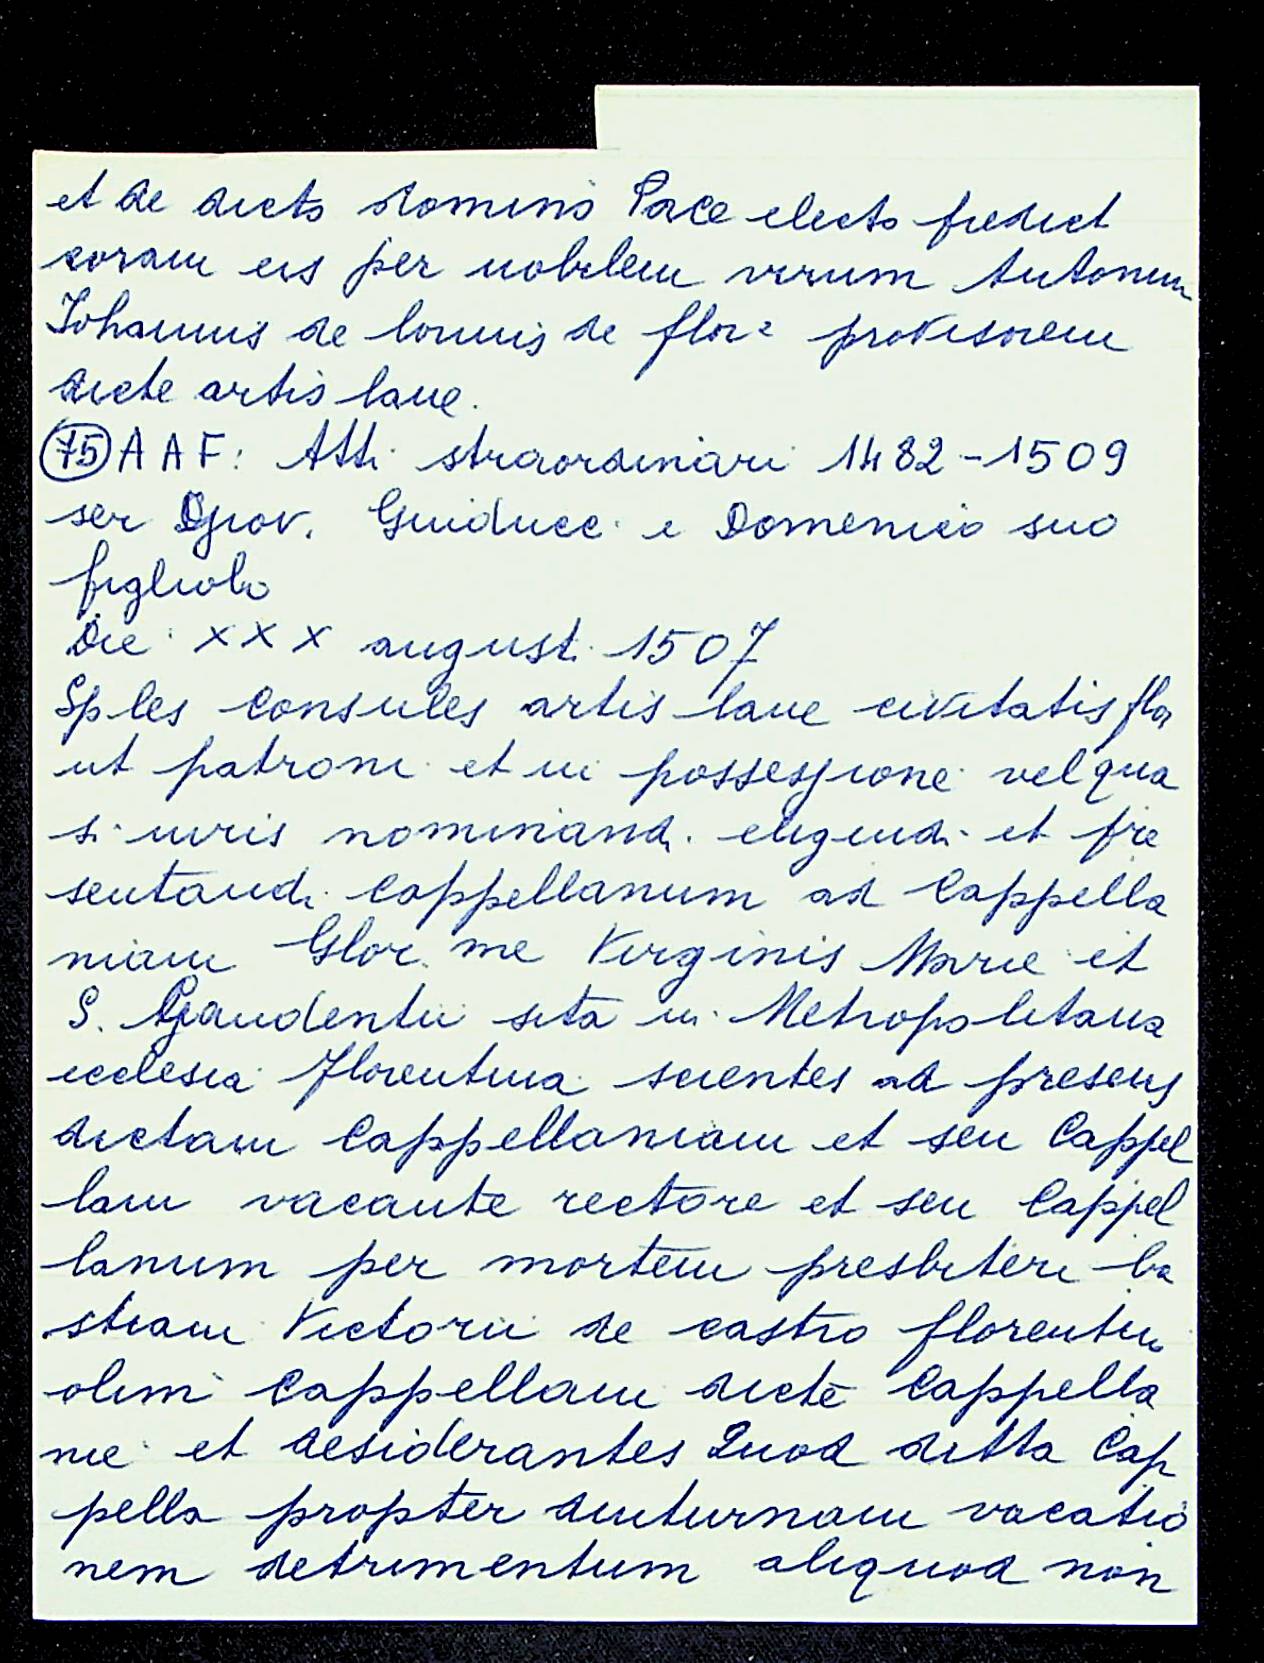 et de dicto domino Pace electo predict
coram eis per nobilem virum Antonium
Johannis de lonnis de flor² provisorem
dicte artis lane.
75 A A F: Atti straordinari 1482-1509
ser Giov. Guiducci e Domenico suo
figliolo
Die XXX augusti 1507
Sples Consules artis lane civitatis flor
ut patroni et in possessione vel qua
si iuris nominandi eligendi et pre
sentandi Cappellanum ad Cappella
niam Glor. me Virginis Marie et
S. Gaudentii sita in Metropolitana
ecclesia florentina scientes ad presens
dictam Cappellaniam et seu Cappel
lam vacante rectore et seu Cappel
lanum per mortem presbiteri ba
stiani Victorii de castro florentin
olim Cappellani dicte Cappella
nie et desiderantes Quod ditta Cap
pella propter diuturnam vacatio
nem detrimentum aliquod non